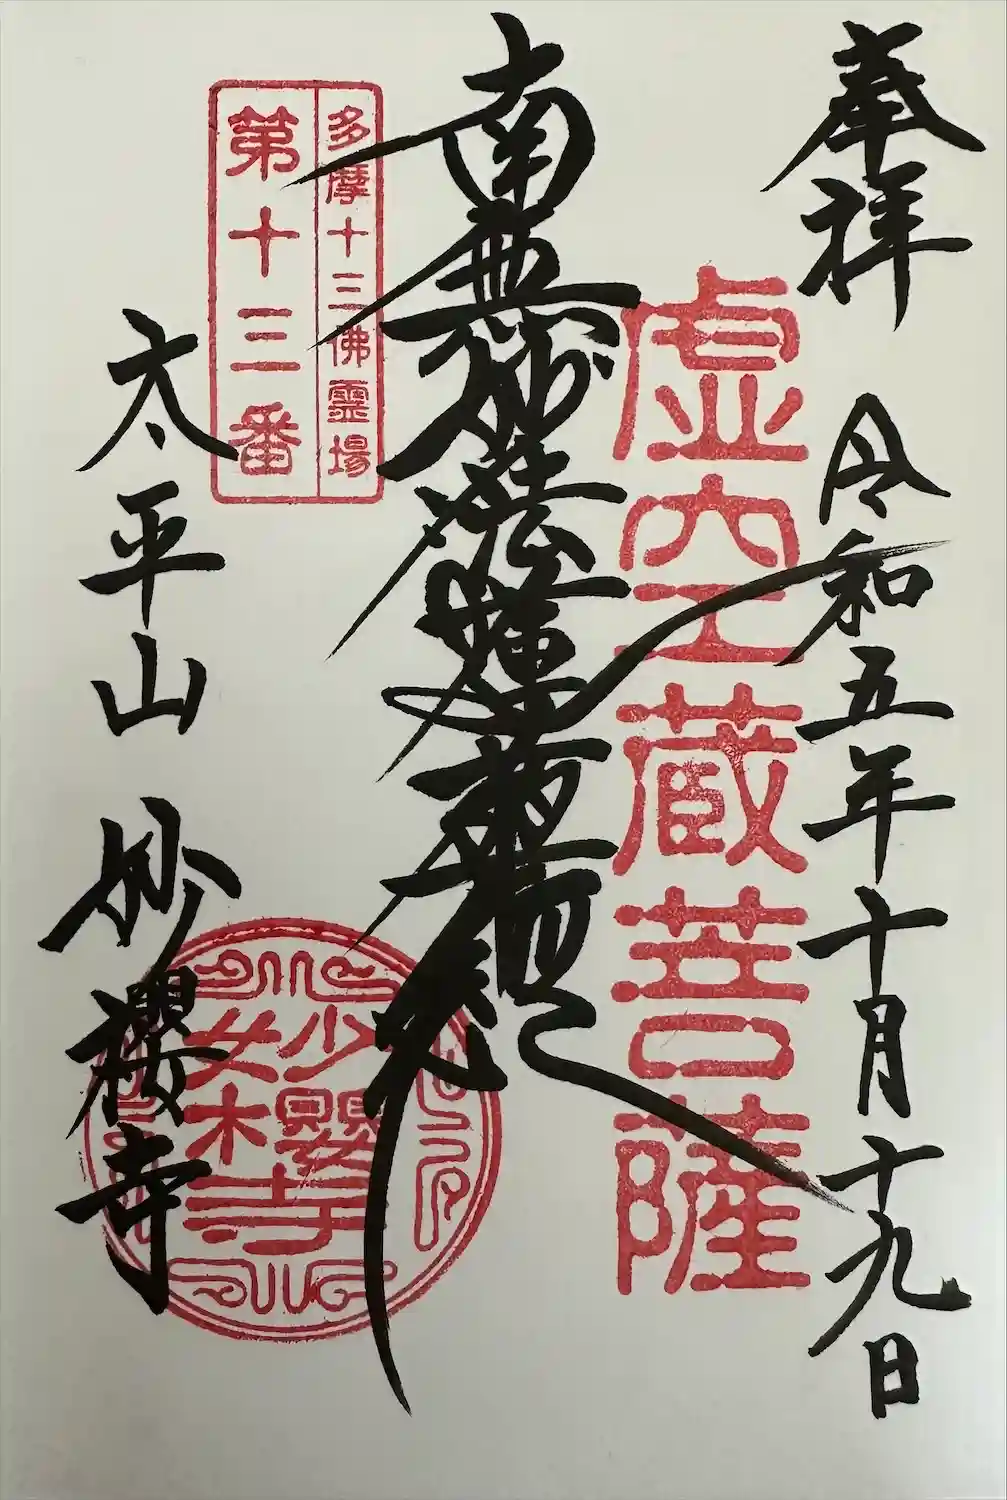 奉拝 令和五年十月十九日
虚空蔵菩薩
南無妙法蓮華経
多摩十三佛霊場
第十三番
太平山 妙櫻寺
妙櫻寺